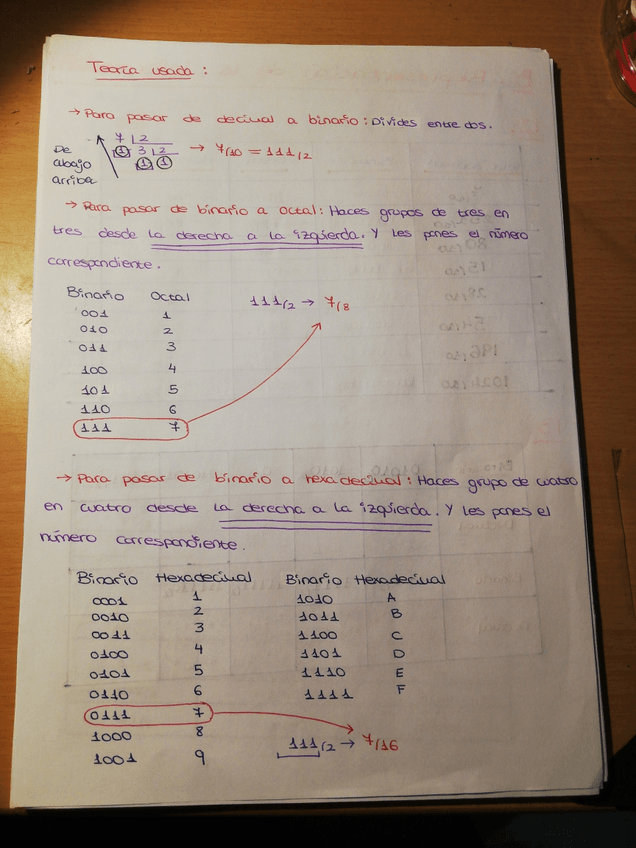 Teoría usada :
→ Para pasar de decimal a binario : Divides entre dos.
De abajo arriba
7 | 2
1 3 | 2
1 1
→ 7/10 = 111/2
→ Para pasar de binario a octal : Haces grupos de tres en
tres desde la derecha a la izquierda. Y les pones el número
correspondiente.
Binario Octal
001 1
010 2
011 3
100 4
101 5
110 6
111 7
111/2 → 7/8
→ Para pasar de binario a hexadecimal : Haces grupo de cuatro
en cuatro desde la derecha a la izquierda. Y les pones el
número correspondiente.
Binario Hexadecimal Binario Hexadecimal
0001 1 1010 A
0010 2 1011 B
0011 3 1100 C
0100 4 1101 D
0101 5 1110 E
0110 6 1111 F
0111 7
1000 8 111/2 → 7/16
1001 9